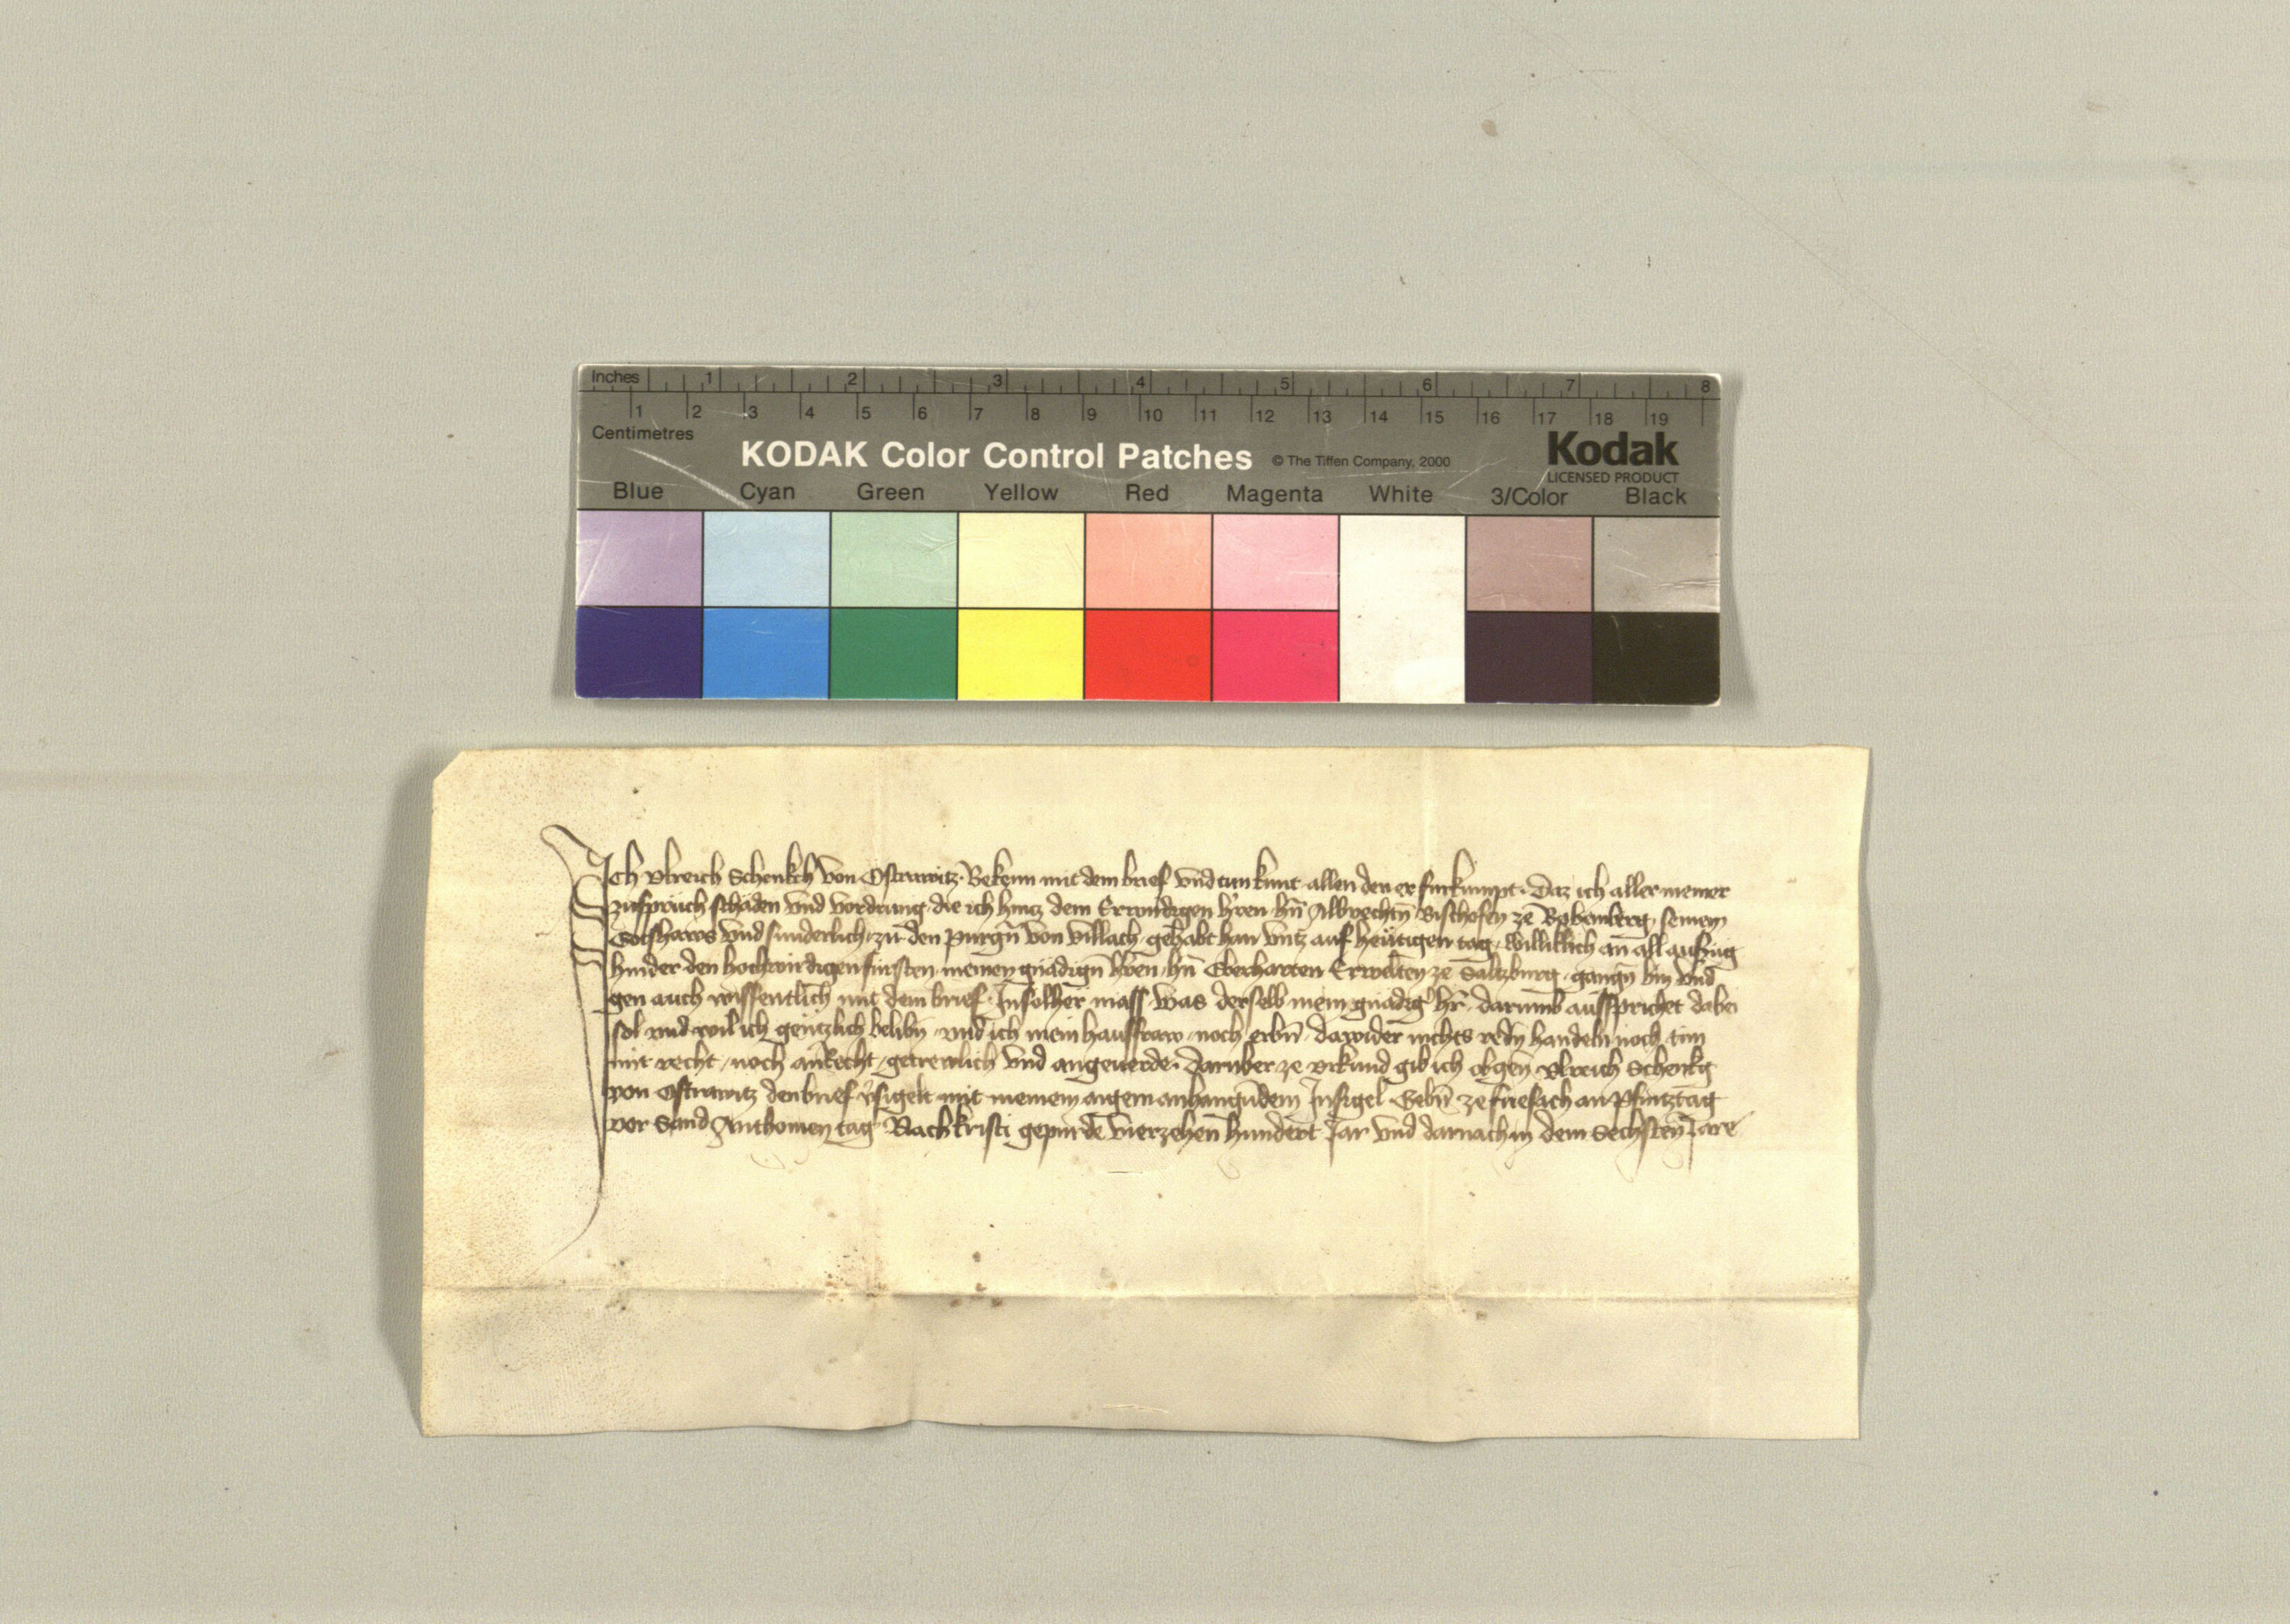 Inches 1 2 3 4 5 6 7 8
1 2 3 4 5 6 7 8 9 10 11 12 13 14 15 16 17 18 19
Centimetres
KODAK Color Control Patches © The Tiffen Company, 2000 Kodak
LICENSED PRODUCT
Blue Cyan Green Yellow Red Magenta White 3/Color Black
Ich Vlreich Schenkch von Ostrawitz. Bekenn mit dem brief vnd tun kunt allen den er furkumpt. Daz ich aller meiner
zusprüch schäden vnd vordrung die ich hintz dem Erwirdigen h'ren hn̄ Albrechtn̄ Bischofen ze Babenberg, seinem
Gotshaws vnd sunderlich zu den purgn̄ von Villach gehabt han vntz auf heutigen tag, williklich an all aufzüg
hinder den hochwirdigen fürsten meinen gnädign̄ h'ren hn̄ Eberharten Erwelten ze Saltzburg gangn̄ bin vnd
gen auch wissentlich mit dem brief. In solher mass was derselb mein gnädig' hr̄ darumb aussprichet dabei
sol vnd wil ich gentzlich belibn̄ vnd ich mein hausfraw noch erbn̄ dawider nichts redn̄ handeln noch tun
mit recht noch an Recht getrewlich vnd angeuerde. Daruber ze vrkund gib ich obgen̄ Vlreich Schenkg
von Ostrawitz den brief v'sigelt mit meinem aigem anhangūdem Insigel Gebn̄ ze friesach an Pfintztag
vor Sand Anthonien tag Nach kristi gepurde Vierzehen hundert Jar vnd darnach in dem Sechsten Jare